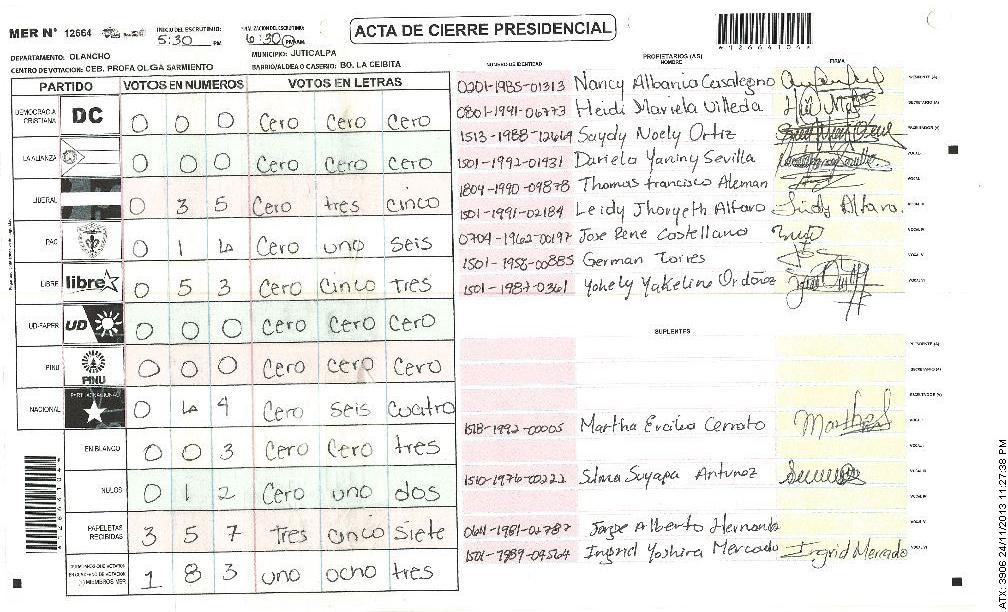 MER N° 12664
INICIO DEL ESCRUTINIO:
5:30 PM
6:30 PM
ACTA DE CIERRE PRESIDENCIAL
DEPARTAMENTO: OLANCHO
MUNICIPIO: JUTICALPA
CENTRO DE VOTACION: CEB. PROFA OLGA SARMIENTO
BARRIO/ALDEA O CASERIO: BO. LA CEIBITA
PARTIDO VOTOS EN NUMEROS VOTOS EN LETRAS
DEMOCRACIA CRISTIANA DC 0 0 0 Cero Cero Cero
LA ALIANZA 0 0 0 Cero Cero Cero
LIBERAL 0 3 5 Cero tres cinco
PAC 0 1 6 Cero uno seis
LIBRE libre 0 5 3 Cero Cinco tres
UD-FAPER UD 0 0 0 Cero Cero Cero
PINU PINU 0 0 0 Cero Cero Cero
NACIONAL PARTIDO NACIONAL 0 6 4 Cero seis cuatro
EN BLANCO 0 0 3 Cero Cero tres
NULOS 0 1 2 Cero uno dos
PAPELETAS RECIBIDAS 3 5 7 tres cinco siete
1 8 3 uno ocho tres
NUMERO DE IDENTIDAD PROPIETARIOS (AS) NOMBRE FIRMA
0201-1985-01313 Nancy Albania Casalegno
0801-1991-06773 Heidi Mariela Villeda
1513-1988-12664 Saydy Noely Ortiz
1501-1992-01931 Dariela Yaniny Sevilla
1804-1990-09878 Thomas Francisco Aleman
1501-1991-02184 Leidy Jhoryeth Alfaro
0704-1962-00197 Jose Rene Costellano
1501-1958-00885 German Torres
1501-1987-0361 Yohely Yakeline Ordoñez
SUPLENTES
1518-1992-00005 Martha Ercilia Cerrato
1510-1976-00222 Silma Suyapa Antunez
Jorge Alberto Hernandez
1501-1989-04564 Ingrid Yoshira Mercado Ingrid Mercado
ATX: 3906 24/11/2013 11:27:38 PM